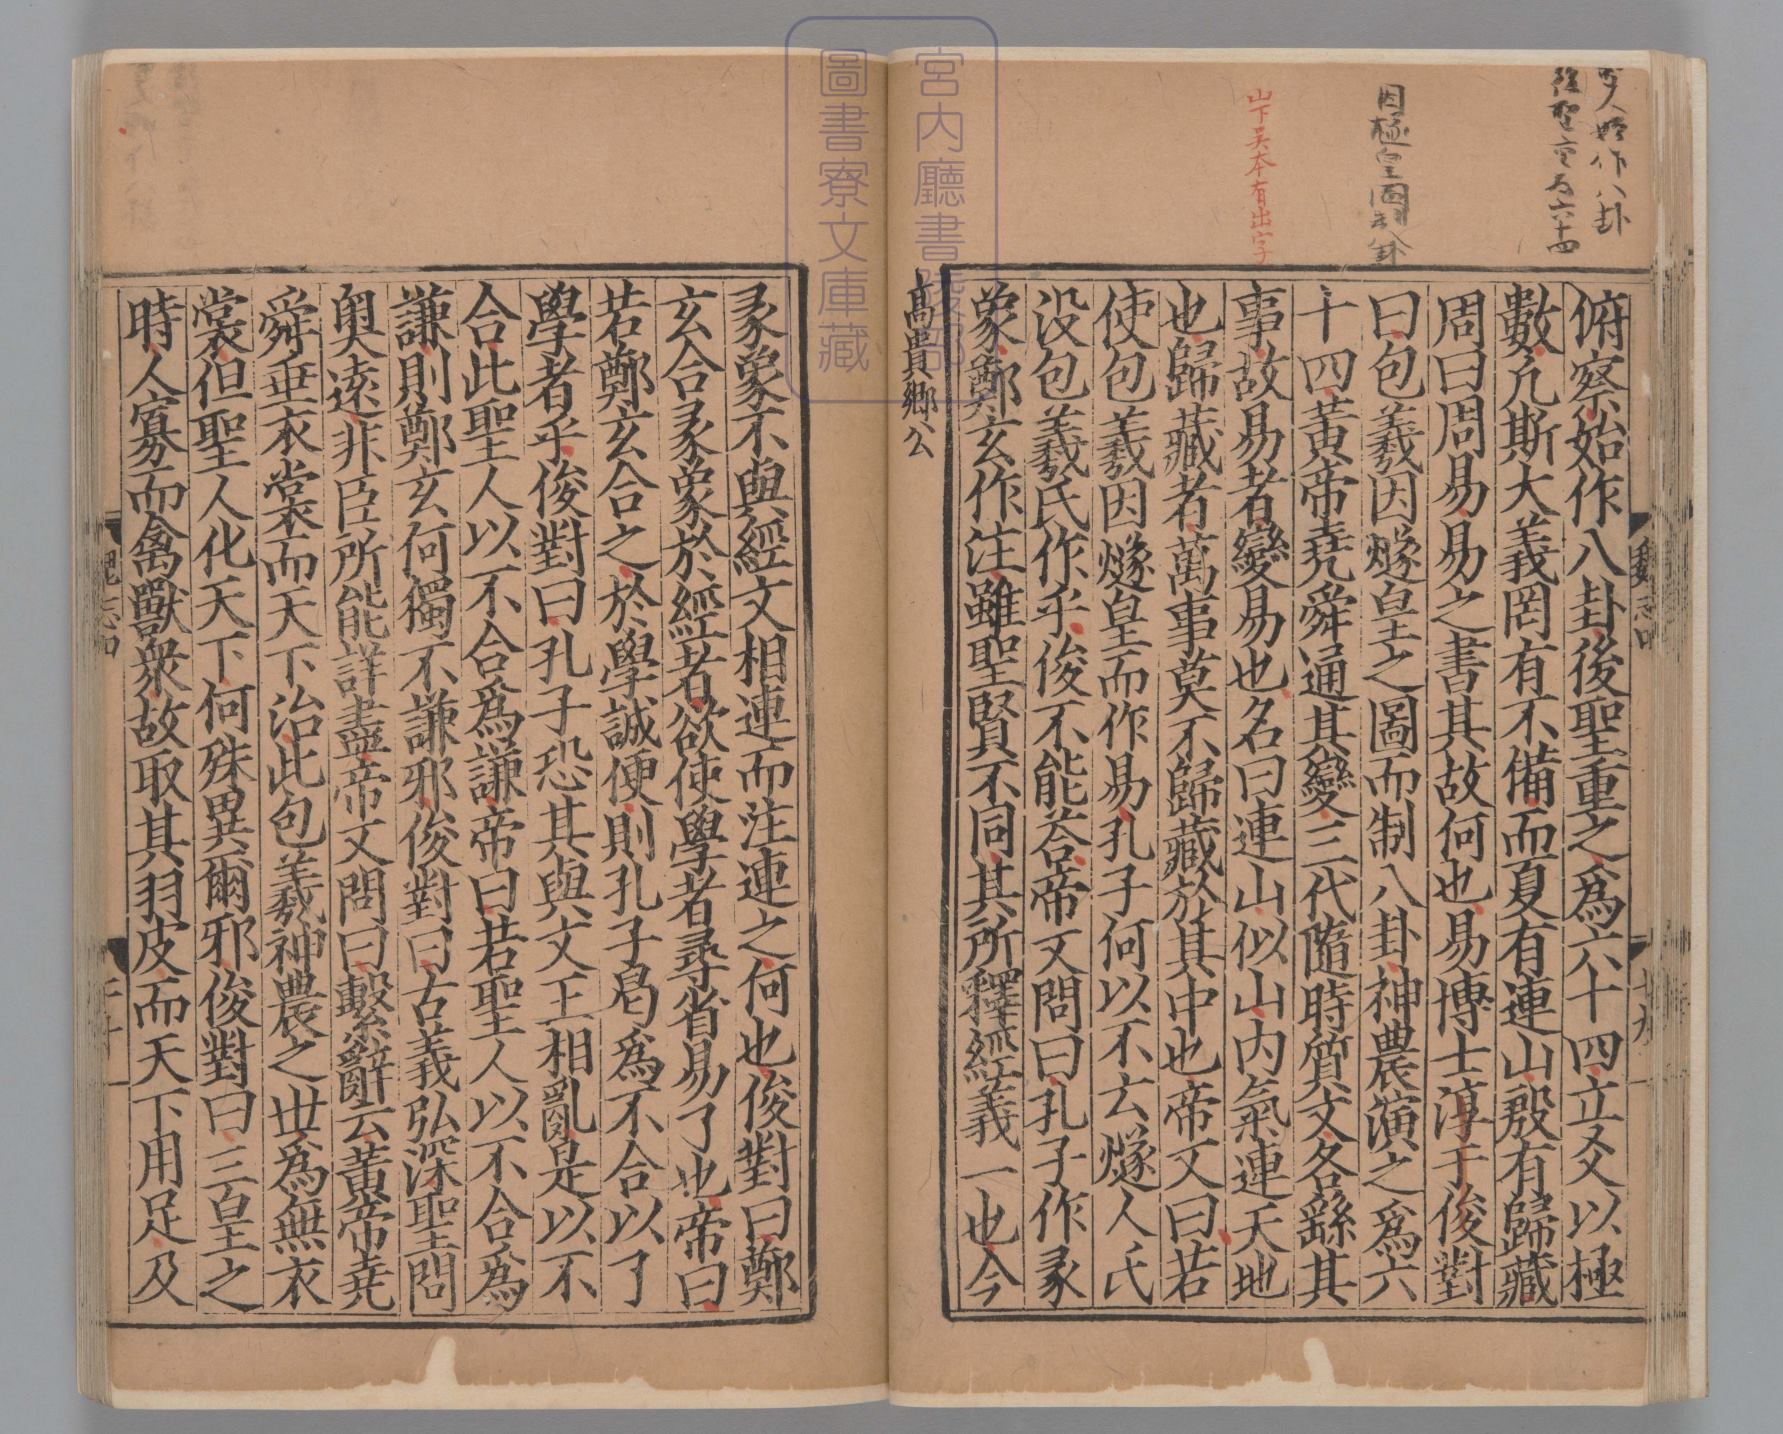 俯察始作八卦後聖重之爲六十四立爻以極
數凢斯大義罔有不備而夏有連山殷有歸藏
周曰周易易之書其故何也易博士淳于俊對
曰包羲因燧皇之圖而制八卦神農演之爲六
十四黃帝堯舜通其變三代隨時質文各繇其
事故易者變易也名曰連山似山内氣連天地
也歸藏者萬事莫不歸藏於其中也帝又曰若
使包羲因燧皇而作易孔子何以不云燧人氏
没包羲氏作乎俊不能荅帝又問曰孔子作彖
象鄭玄作注雖聖賢不同其所釋經義一也今
高貴鄉公
彖象不與經文相連而注連之何也俊對曰鄭
玄合彖象於經者欲使學者尋省易了也帝曰
若鄭玄合之於學誠便則孔子曷爲不合以了
學者乎俊對曰孔子恐其與文王相亂是以不
合此聖人以不合爲謙帝曰若聖人以不合爲
謙則鄭玄何獨不謙邪俊對曰古義弘深聖問
奥遠非臣所能詳盡帝又問曰繫辭云黄帝堯
舜垂衣裳而天下治此包羲神農之世爲無衣
裳但聖人化天下何殊異爾邪俊對曰三皇之
時人寡而禽獸衆故取其羽皮而天下用足及
魏志四
山下吴本有出字
宮内廳書陵部
圖書寮文庫藏